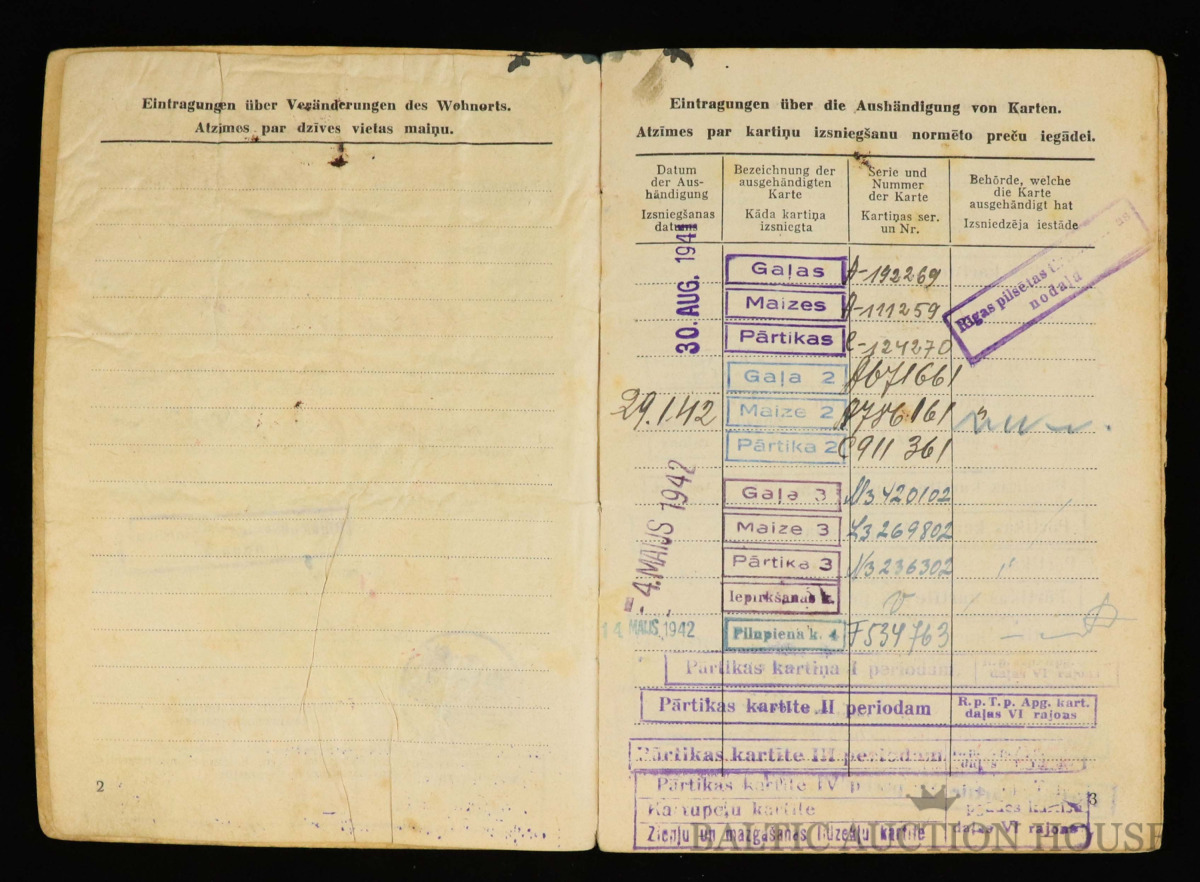 Eintragungen über Veränderungen des Wohnorts.
Atzīmes par dzīves vietas maiņu.
2
Eintragungen über die Aushändigung von Karten.
Atzīmes par kartiņu izsniegšanu normēto preču iegādei.
Datum der Aus-händigung
Izsniegšanas datums
Bezeichnung der ausgehändigten Karte
Kāda kartiņa izsniegta
Serie und Nummer der Karte
Kartiņas ser. un Nr.
Behörde, welche die Karte ausgehändigt hat
Izsniedzēja iestāde
30. AUG. 1941
Gaļas A-192269
Maizes A-111259
Pārtikas C-124270
Rīgas pilsētas
nodaļa
Gaļa 2 A671661
29.1.42 Maize 2 161
Pārtika 2 C911 361
4. MAIJS 1942
Gaļa 3 N3420102
Maize 3 L3269802
Pārtika 3 N3236302
Iepirkšanas k. V
14. MAIJS 1942 Pilnpiena k. 4 F534763
Pārtikas kartiņa I periodam
Pārtikas kartīte II periodam R. p. T. p. Apg. kart. daļas VI rajons
Pārtikas kartīte III periodam
Pārtikas kartīte IV
Kartupeļu kartīte
Ziepju un mazgāšanas līdzekļu kartīte daļas VI rajons
3
BALTIC AUCTION HOUSE